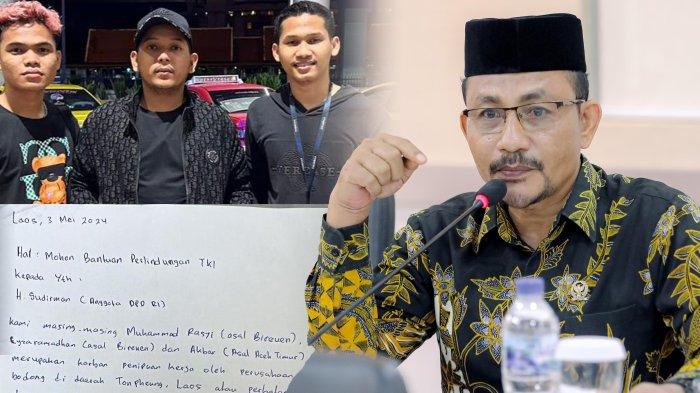 Laos, 3 Mei 2024
Hal : Mohon Bantuan Perlindungan TKI
Kepada Yth :
H. Sudirman (Anggota DPD RI)
Kami masing-masing Muhammad Rasyi (asal Bireuen),
(asal Bireuen) dan Akbar (Asal Aceh Timur)
merupakan korban penipuan kerja oleh perusahaan
bodong di daerah Tonpheung, Laos atau